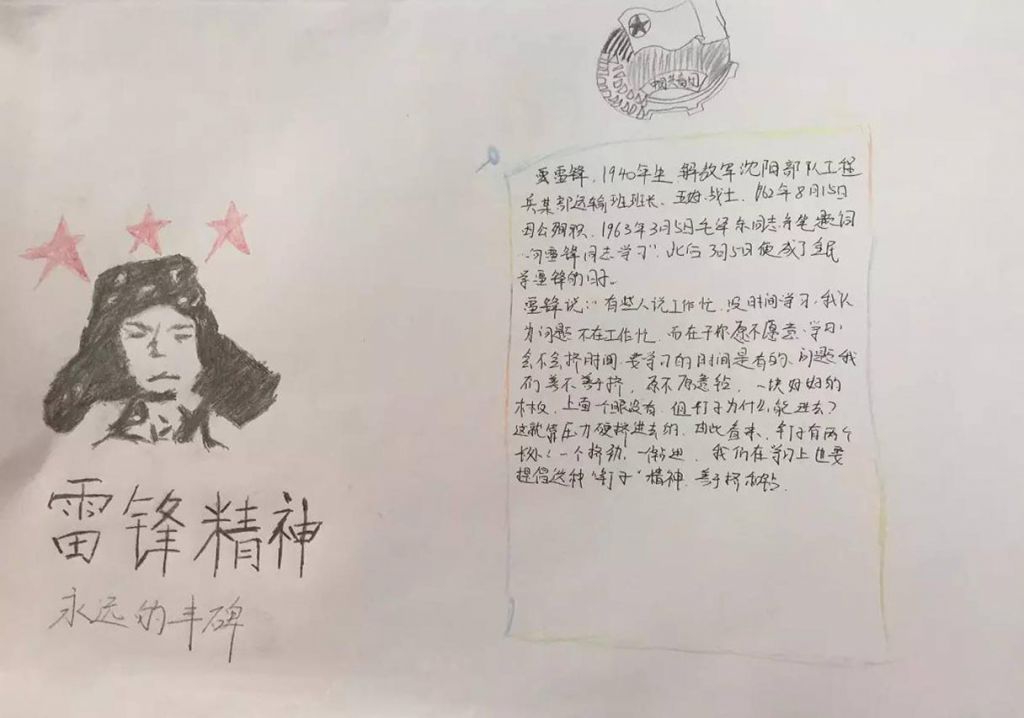 中国共青团
雷锋，1940年生 解放军沈阳部队工程
兵某部运输班班长、五好战士，1962年8月15日
因公殉职，1963年3月5日毛泽东同志亲笔题词
"向雷锋同志学习"，此后3月5日便成了全民
学雷锋的日子。
雷锋说："有些人说工作忙，没时间学习，我认
为问题不在工作忙，而在于你愿不愿意学习，
会不会挤时间，要学习的时间是有的，问题我
们善不善于挤，愿不愿意钻，一块好好的
木板，上面一个眼没有，但钉子为什么能进去？
这就靠压力硬挤进去的，由此看来，钉子有两个
长处：一个挤劲，一个钻进，我们在学习上也要
提倡这种"钉子"精神，善于挤和钻。
雷锋精神
永远的丰碑